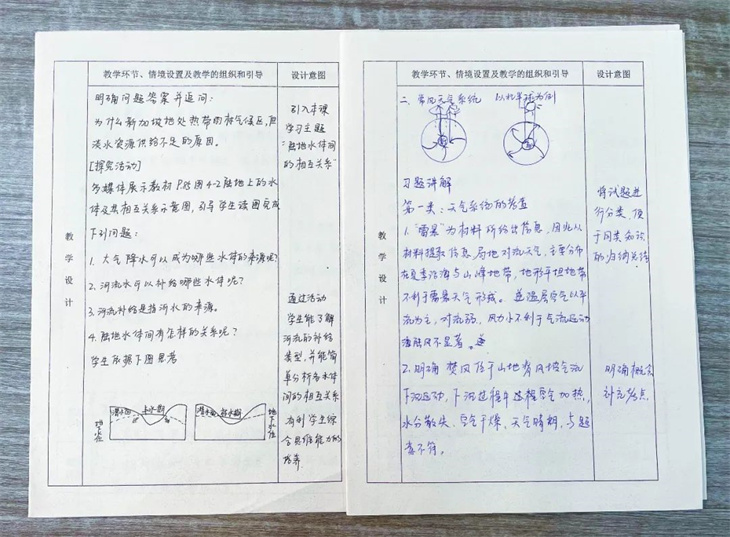 教学环节、情境设置及教学的组织和引导
设计意图
教学设计
明确问题答案并追问:
为什么新加坡地处热带雨林气候区,但
淡水资源供给不足的原因。
[探究活动]
多媒体展示教材P85图4-2陆地上的水
体及其相互关系示意图,引导学生读图完成
下列问题:
1. 大气降水可以成为哪些水体的来源呢?
2. 河流水可以补给哪些水体呢?
3. 河流补给是指河水的来源。
4. 陆地水体间有怎样的关系呢?
学生依据下图思考
潜水面
丰水期
潜水面
枯水期
地下水位
引入本课
学习主题
"陆地水体间
的相互关系"
通过活动
学生能了解
河流的补给
类型,并能简
单分析各水体
间的相互关系
有利学生综
合思维能力的
培养.
教学环节、情境设置及教学的组织和引导
设计意图
教学设计
二、常见天气系统
以北半球为例
习题讲解
第一类:天气系统的考查
1. "雷暴"为材料所给出信息,因此从
材料提取信息局地对流天气,主要分布
在夏季沿海与山峰地带,地形平坦地带
不利于雷暴天气形成。逆温层空气以平
流为主,对流弱,风力小不利于气流运动
海陆风不显著。
2. 明确焚风位于山地背风坡气流
下沉运动,下沉过程中过程空气加热,
水分散失、空气干燥、天气晴朗,与题
意不符。
将试题进
行分类,便
于同类知识
的归纳总结
明确概念
补充考点